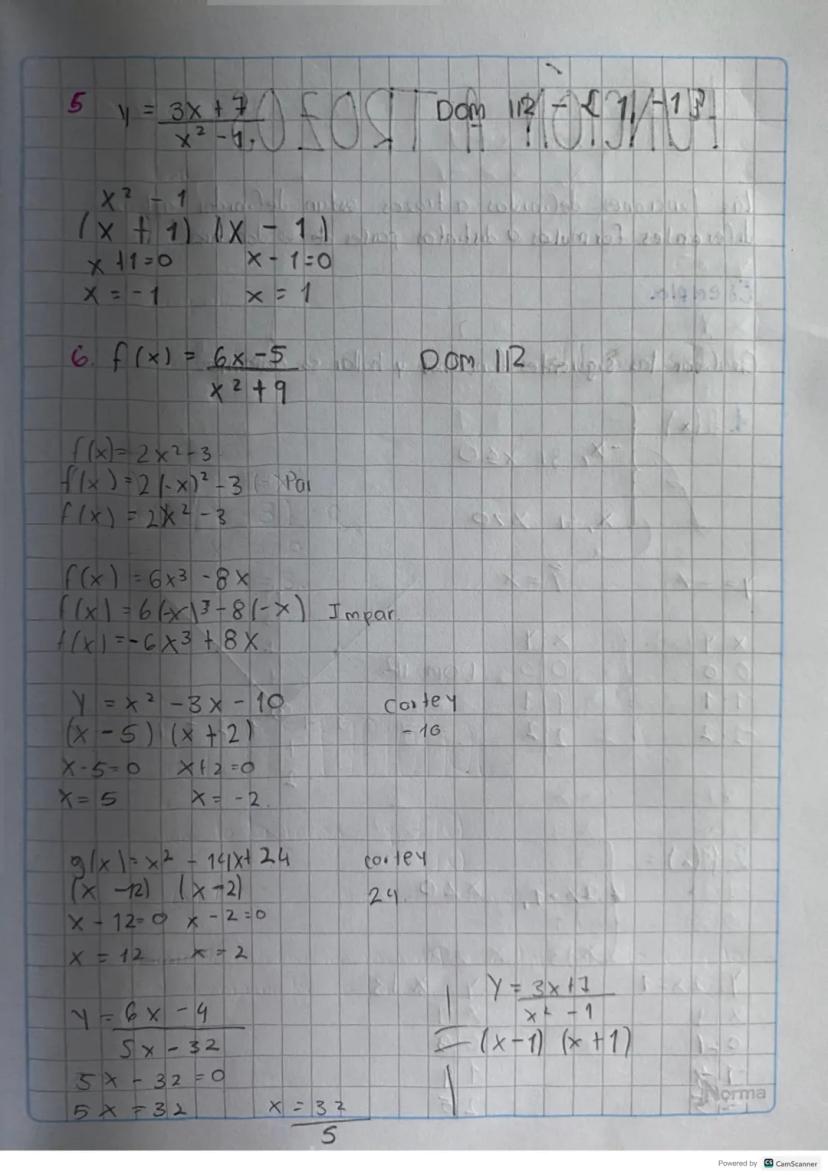 5 y = 3x + 7 / x² - 1. Dom IR - { 1, -1 }
x² - 1
(x + 1) (x - 1)
x + 1 = 0 x - 1 = 0
x = -1 x = 1
6. f(x) = 6x - 5 / x² + 9 Dom IR
f(x) = 2x² - 3
f(x) = 2(-x)² - 3 Par
f(x) = 2x² - 3
f(x) = 6x³ - 8x
f(x) = 6(-x)³ - 8(-x) Impar
f(x) = -6x³ + 8x
y = x² - 3x - 10 corte y
(x - 5) (x + 2) -10
x - 5 = 0 x + 2 = 0
x = 5 x = -2
g(x) = x² - 14x + 24 corte y
(x - 12) (x - 2) 24.
x - 12 = 0 x - 2 = 0
x = 12 x = 2
y = 6x - 4 / 5x - 32
5x - 32 = 0
5x = 32 x = 32 / 5
y = 3x + 7 / x² - 1
= (x - 1) (x + 1)
Norma
Powered by CS CamScanner